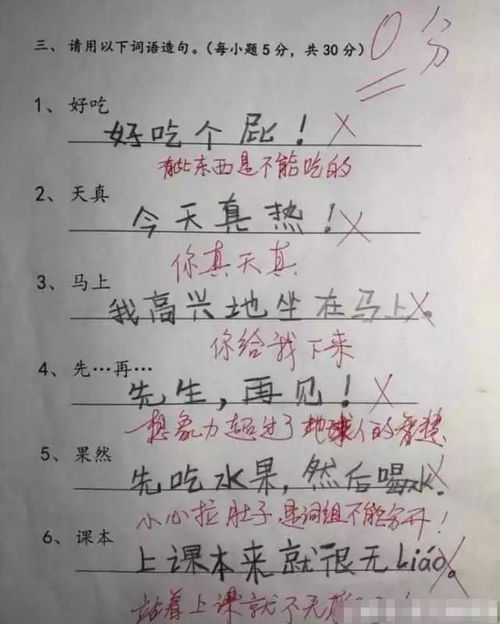 三、请用以下词语造句。（每小题5分，共30分）
0分
1、好吃
好吃个屁！
有些东西是不能吃的
2、天真
今天真热！
你真天真
3、马上
我高兴地坐在马上。
你给我下来
4、先…再…
先生，再见！
想象力超过了地球人的智慧
5、果然
先吃水果，然后喝水。
小心拉肚子，是词组不能分开！
6、课本
上课本来就很无Liáo。
站着上课就不无